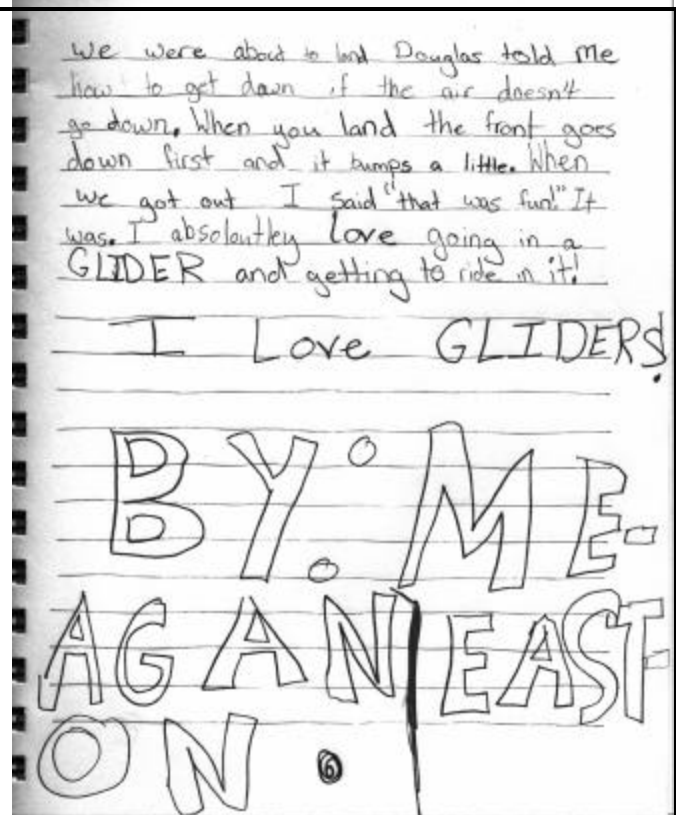 we were about to land Douglas told me
how to get down if the air doesn't
go down. When you land the front goes
down first and it bumps a little. When
we got out I said "that was fun!" It
was. I absoloutley love going in a
GLIDER and getting to ride in it!
I Love GLIDERS!
BY: ME-
AGAN EAST-
ON 6